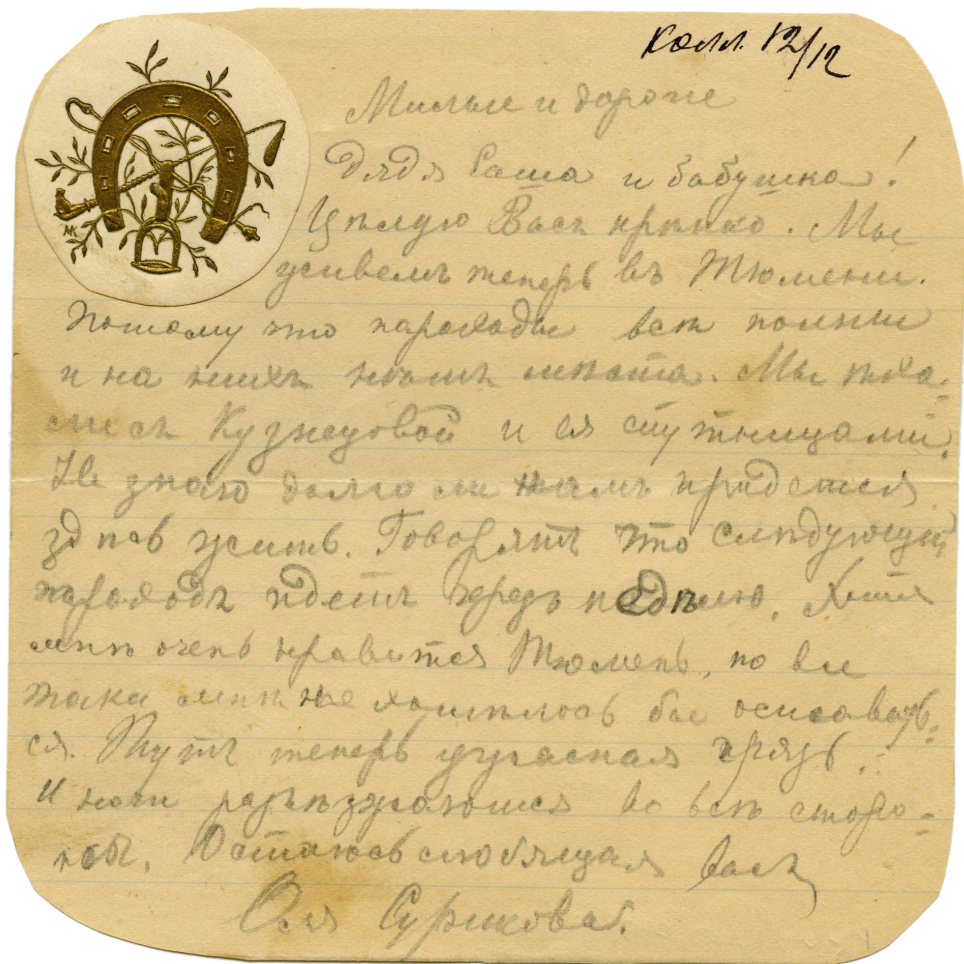 колл. 12/12
Милые и дорогие
дядя Саша и бабушка!
Цѣлую Васъ крѣпко. Мы
живемъ теперь въ Тюмени.
Потому что пароходы всѣ полны
и на нихъ нѣтъ мѣста. Мы ѣха-
ли съ Кузнецовой и ея спутницами.
Не знаю долго ли намъ придется
здѣсь жить. Говорятъ что слѣдующій
пароходъ идетъ черезъ недѣлю. Хотя
мнѣ очень нравится Тюмень, но все
таки мнѣ не хотѣлось бы осно
ся. Тутъ теперь ужасная грязь.
И ноги разъѣзжаются во всѣ сторо-
ны. Остаюсь любящая васъ
Оля Сурикова.